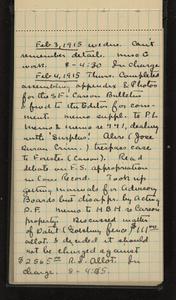 Feb 3, 1915 Wednes. Can't
remember details. misc &
work. 8 - 4:30 In Charge
Feb 4, 1915 Thurs. Completed
assembling appendix & Photos
for the S.F. - Carson Bulletin
& fwd to the Editor for com-
ment. memo suppl. to P.L.
Memo & memo 2 771, dealing
with "Surplus". Also (Jose
Duran Crim.) trespass case
to Forester (Carson). Read
debate on F.S. appropriation
in Cong Record. Took up
getting manuals for Advisory
Boards but disapp. by Acting
D.F. memo to H.B.H. to Carson
property. Discussed matter
of Datil (Goesling fence) $111.00
allot. & decided it should
not be charged against
$2565.00 R.I. Allot. In
charge. 8 - 4:45.